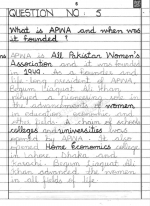 QUESTION NO: 5
What is APWA and when was
it founded?
APWA is All Pakistan Women's
Association and it was founded
in 1949. As a founder and
life time president of APWA,
Begum Liaquat Ali Khan
played a pioneering role in
the advancements of women
in education, economic and
other fields. A chain of schools
colleges and universities
opened by APWA. It also
opened Home Economics college
in Lahore, Dhaka and
Karachi. Begum Liaquat Ali
Khan advanced the women
in all fields of life